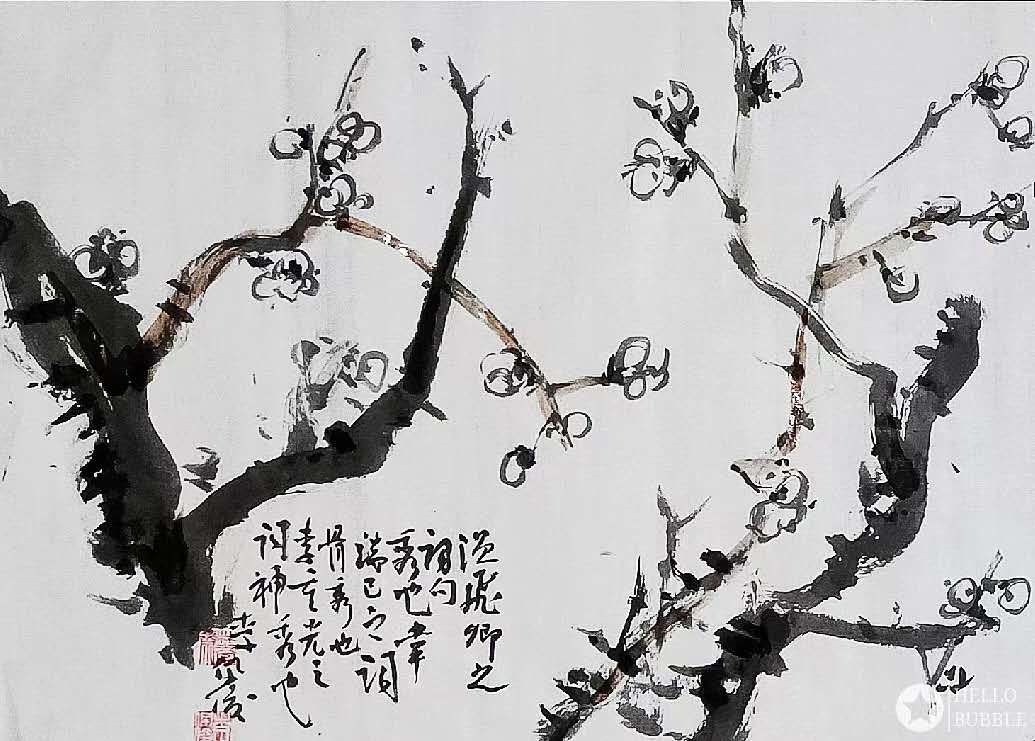 温飛卿之
词句
秀也韋
端己之词
骨秀也
李重光之
词神秀也
HELLO
BUBBLE